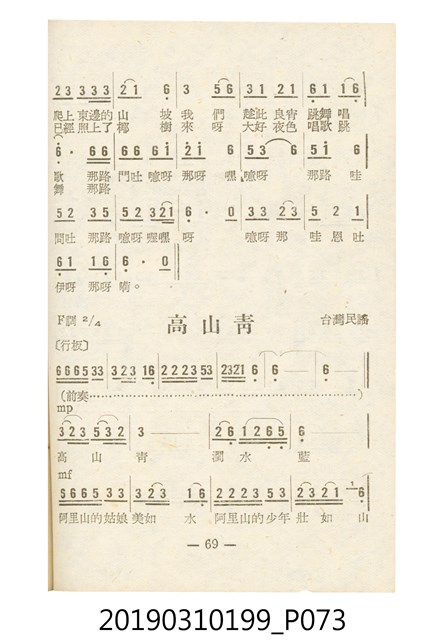 23 333 21 6 3 56 31 21 61 16
爬上 東邊的 山 坡 我 們 趁此 良宵 跳舞 唱
已經 照上了 椰 樹 來 呀 大好 夜色 唱歌 跳
6 · 66 66 61 21 6 53 6 51 6
歌 那路 門吐 噫呀 那呀 嘿 噫呀 那路 哇
舞 那路
52 35 52 321 6 · 0 33 23 5 2 1
問吐 那路 噫呀 嘿嘿 呀 噫呀 那 哇 恩 吐
61 16 6 · 0
伊呀 那呀 嗬。
F調 2/4 高山青 台灣民謠
〔行板〕
666533 323 16 222353 2321 6 6 — 6 —
(前奏…………………………)
mp
323 532 3 —— 26 1265 6 —
高 山 青 澗 水 藍
mf
666533 323 16 222353 2321 6
阿里山的姑娘 美如 水 阿里山的少年 壯 如 山
— 69 —
20190310199_P073